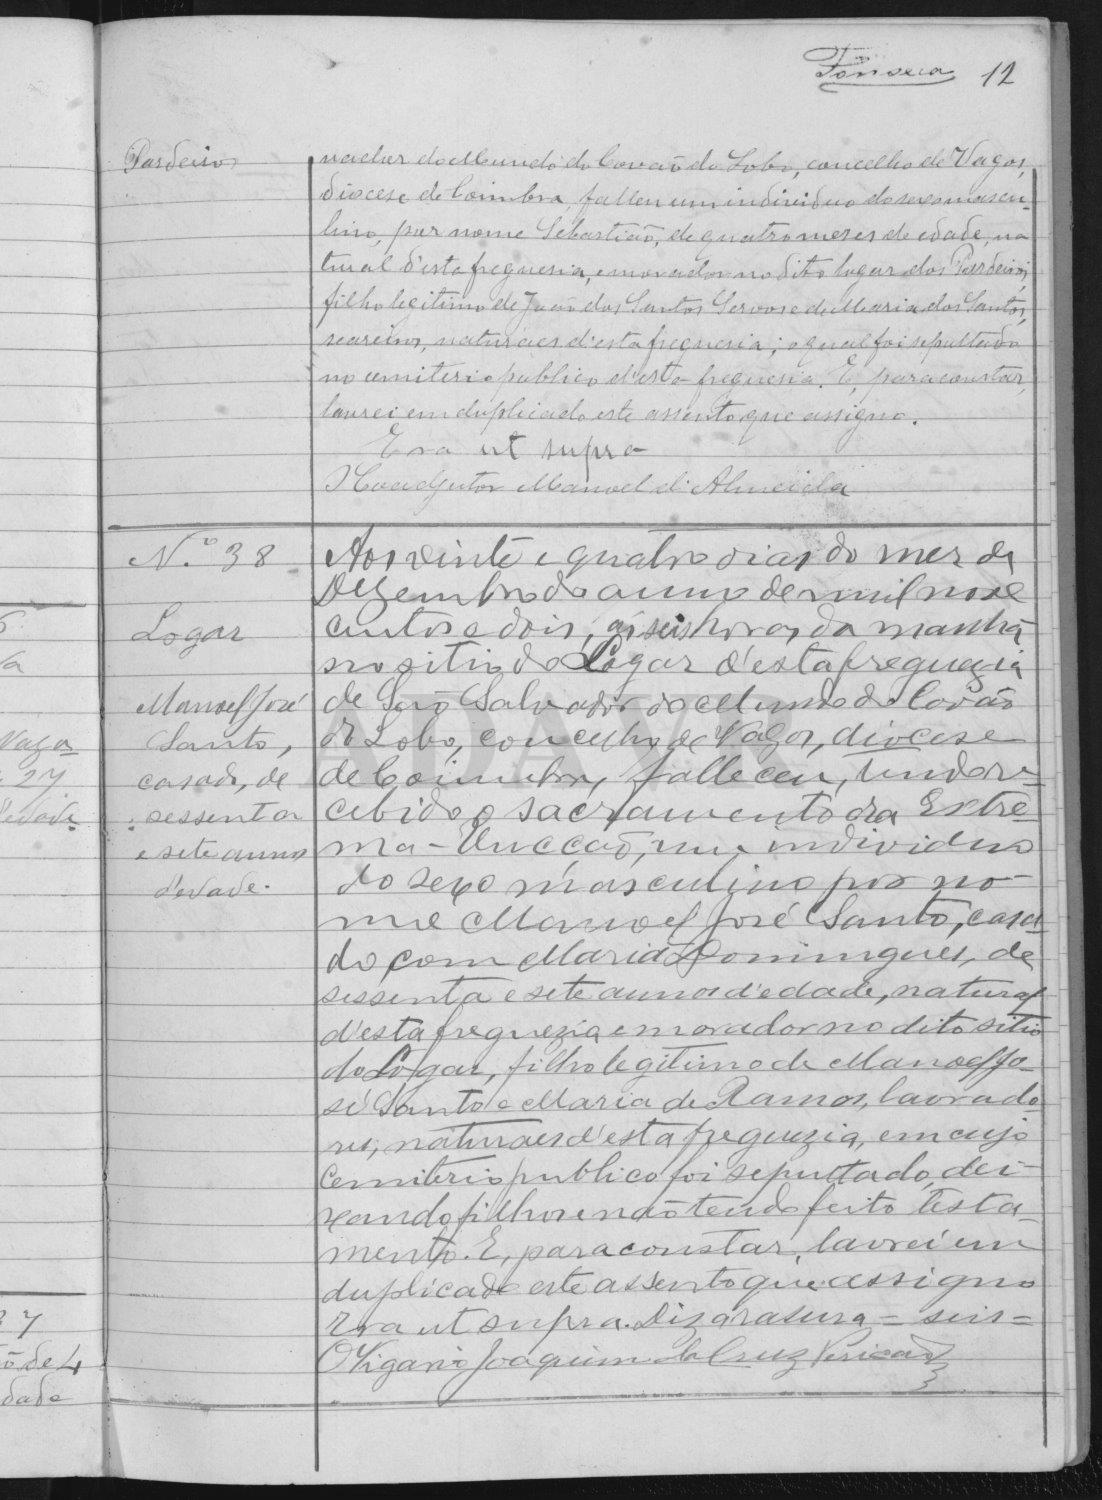 Fonseca 12
Pardeiros
vador do Mundo do Covão do Lobo, concelho de Vagos,
diocese de Coimbra, falleu um individuo do sexo mascu-
lino, por nome Sebastião, de quatro meses de edade, na
tural d'esta freguesia, e morador no dito lugar dos Pardeiros,
filho legitimo de João dos Santos Servo e de Maria dos Santos,
seareiros, naturaes d'esta freguesia; o qual foi sepultado
no cemiterio publico d'esta freguesia. E, para constar,
lavrei em duplicado este assento que assigno.
Era ut supra
O Coadjutor Manoel d'Almeida
N.º 38
Logar
Manoel José
Santo,
casado, de
sessenta
e sete annos
d'edade.
Aos vinte e quatro dias do mez de
Dezembro do anno de mil nove
centos e dois, ás seis horas da manhã
no sitio do Logar d'esta freguezia
de São Salvador do Mundo do Covão
do Lobo, concelho de Vagos, diocese
de Coimbra, falleceu, tendo re-
cebido o sacramento da Extre-
ma-Uncção, um individuo
do sexo masculino por no-
me Manoel José Santo, casa-
do com Maria Domingues, de
sessenta e sete annos d'edade, natural
d'esta freguezia e morador no dito sitio
do Logar, filho legitimo de Manoel Jo-
sé Santo e Maria de Ramos, lavrado-
res, naturaes d'esta freguezia, em cujo
cemiterio publico foi sepultado, dei-
xando filhos e não tendo feito testa-
mento. E, para constar, lavrei em
duplicado este assento que assigno
Era ut supra. Diz a rasura = seis =
O Vigario Joaquim da Cruz Pericão
ADAVR
Vagos
27
d'edade
37
ão de L
dade